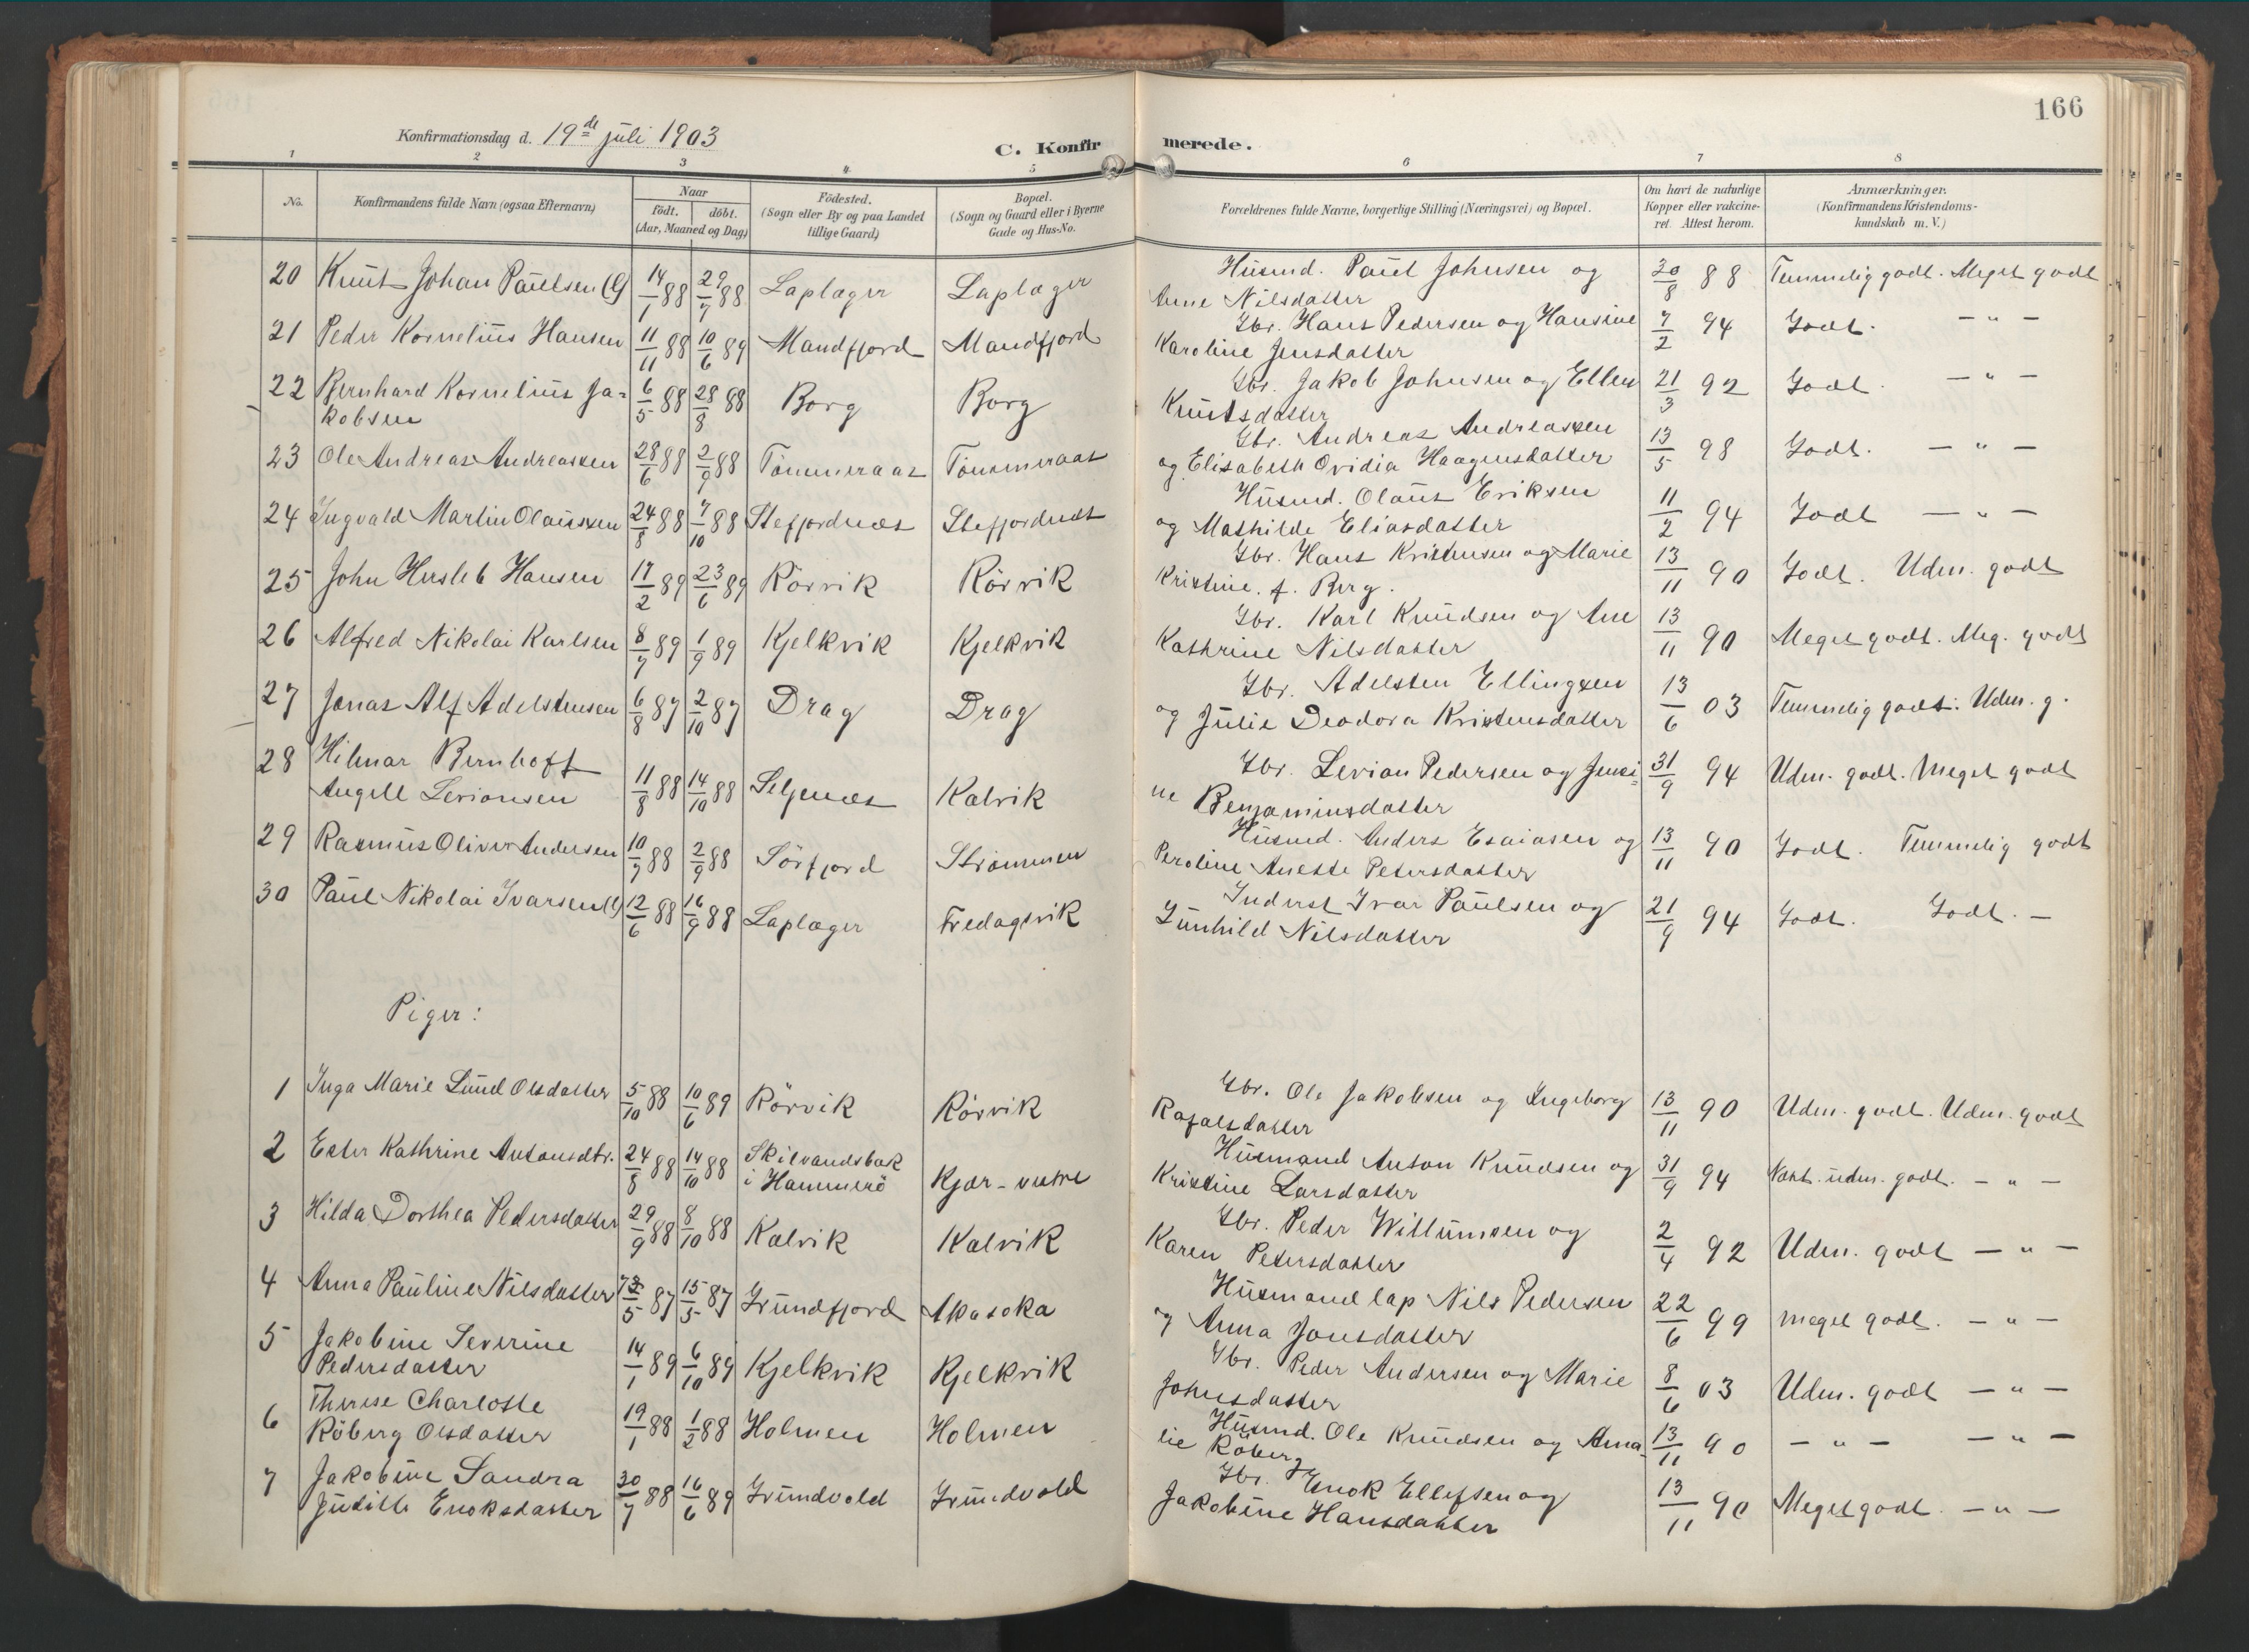 166
Konfirmationsdag d. 19de juli 1903
C. Konfirmerede.
1 2 3 4 5 6 7 8
No. | Konfirmandens fulde Navn (ogsaa Efternavn) | Naar født. døbt. (Aar, Maaned og Dag) | Fødested. (Sogn eller By og paa Landet tillige Gaard) | Bopæl. (Sogn og Gaard eller i Byerne Gade og Hus-No. | Forældrenes fulde Navne, borgerlige Stilling (Næringsvei) og Bopæl. | Om havt de naturlige Kopper eller vakcineret. Attest herom. | Anmærkninger. (Konfirmandens Kristendomskundskab m. V.)
20 Knut Johan Paulsen (l) 14/1 88 29/7 88 Laplæger Laplæger Husmd. Paul Johnsen og Anne Nilsdatter 30/8 88 Temmelig godt. Meget godt
21 Peder Kornelius Hansen 11/11 88 10/6 89 Mandfjord Mandfjord Gbr. Hans Pedersen og Hansine Karoline Jensdatter 7/2 94 Godt. — " —
22 Bernhard Kornelius Jakobsen 6/5 88 28/8 88 Borg Borg Gbr. Jakob Johnsen og Ellen Knutsdatter 21/3 92 Godt. — " —
23 Ole Andreas Andreassen 28/6 88 2/9 88 Tømmeraas Tømmeraas Gbr. Andreas Andreassen og Elisabeth Ovidia Haagensdatter 13/5 98 Godt. — " —
24 Ingvald Martin Olaussen 24/8 88 7/10 88 Stefjordnæs Stefjordnæs Husmd. Olaus Eriksen og Mathilde Eliasdatter 11/2 94 Godt — " —
25 John Hersleb Hansen 17/2 89 23/6 89 Rørvik Rørvik Gbr. Hans Kristensen og Marie Kristine f. Berg. 13/11 90 Godt. Udm. godt
26 Alfred Nikolai Karlsen 8/7 89 1/9 89 Kjelkvik Kjelkvik Gbr. Karl Knudsen og Ane Kathrine Nilsdatter 13/11 90 Meget godt. Meg. godt
27 Jonas Alf Adelstensen 6/8 87 2/10 87 Drag Drag Gbr. Adelsten Ellingsen og Julie Deodora Kristensdatter 13/6 03 Temmelig godt. Udm. g.
28 Hilmar Bernhoft Angell Levionsen 11/8 88 14/10 88 Seljenæs Kalvik Gbr. Levion Pedersen og Jensine Benjaminsdatter 31/9 94 Udm. godt. Meget godt
29 Rasmus Oliver Andersen 10/7 88 2/9 88 Sørfjord Strømmen Husmd. Anders Esaiasen og Peroline Anette Petersdatter 13/11 90 Godt. Temmelig godt
30 Paul Nikolai Ivarsen (l) 12/6 88 16/9 88 Laplæger Fredagsvik Inderst Ivar Paulsen og Gunhild Nilsdatter 21/9 94 Godt. Godt. —
Piger:
1 Inga Marie Lund Olsdatter 5/10 88 10/6 89 Rørvik Rørvik Gbr. Ole Jakobsen og Ingeborg Rafalsdatter 13/11 90 Udm. godt. Udm. godt
2 Ester Kathrine Antonsdtr. 24/8 88 14/10 88 Skilvandsbak i Hammerø Kjær-vestre Husmand Anton Knudsen og Kristine Larsdatter 31/9 94 Næst. udm. godt. — " —
3 Hilda Dorthea Pedersdatter 29/9 88 8/10 88 Kalvik Kalvik Gbr. Peder Willumsen og Karen Petersdatter 2/4 92 Udm. godt — " —
4 Anna Pauline Nilsdatter 5 87 15/5 87 Grundfjord Akasoka Husmand lap Nils Pedersen og Anna Jonsdatter 22/6 99 meget godt. — " —
5 Jakobine Severine Pedersdatter 14/1 89 6/10 89 Kjelkvik Kjelkvik Gbr. Peder Andersen og Marie Johnsdatter 8/6 03 Udm. godt — " —
6 Therese Charlotte Røberg Olsdatter 19/1 88 1/2 88 Holmen Holmen Husmd. Ole Knudsen og Amalie Røberg 13/11 90 — " — — " —
7 Jakobine Sandra Juditte Enoksdatter 30/7 88 16/6 89 Grundvold Grundvold Gbr. Enok Ellefsen og Jakobine Hansdatter 13/11 90 Meget godt — " —